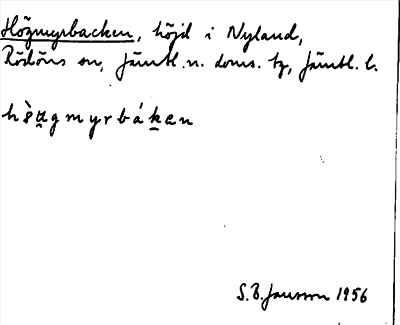 Högmyrbacken, höjd i Nyland,
Rödöns sn, Jämtl. n. doms. tg, Jämtl. l.
hɛ̀u̯gmyrbáken
S. B. Jansson 1956